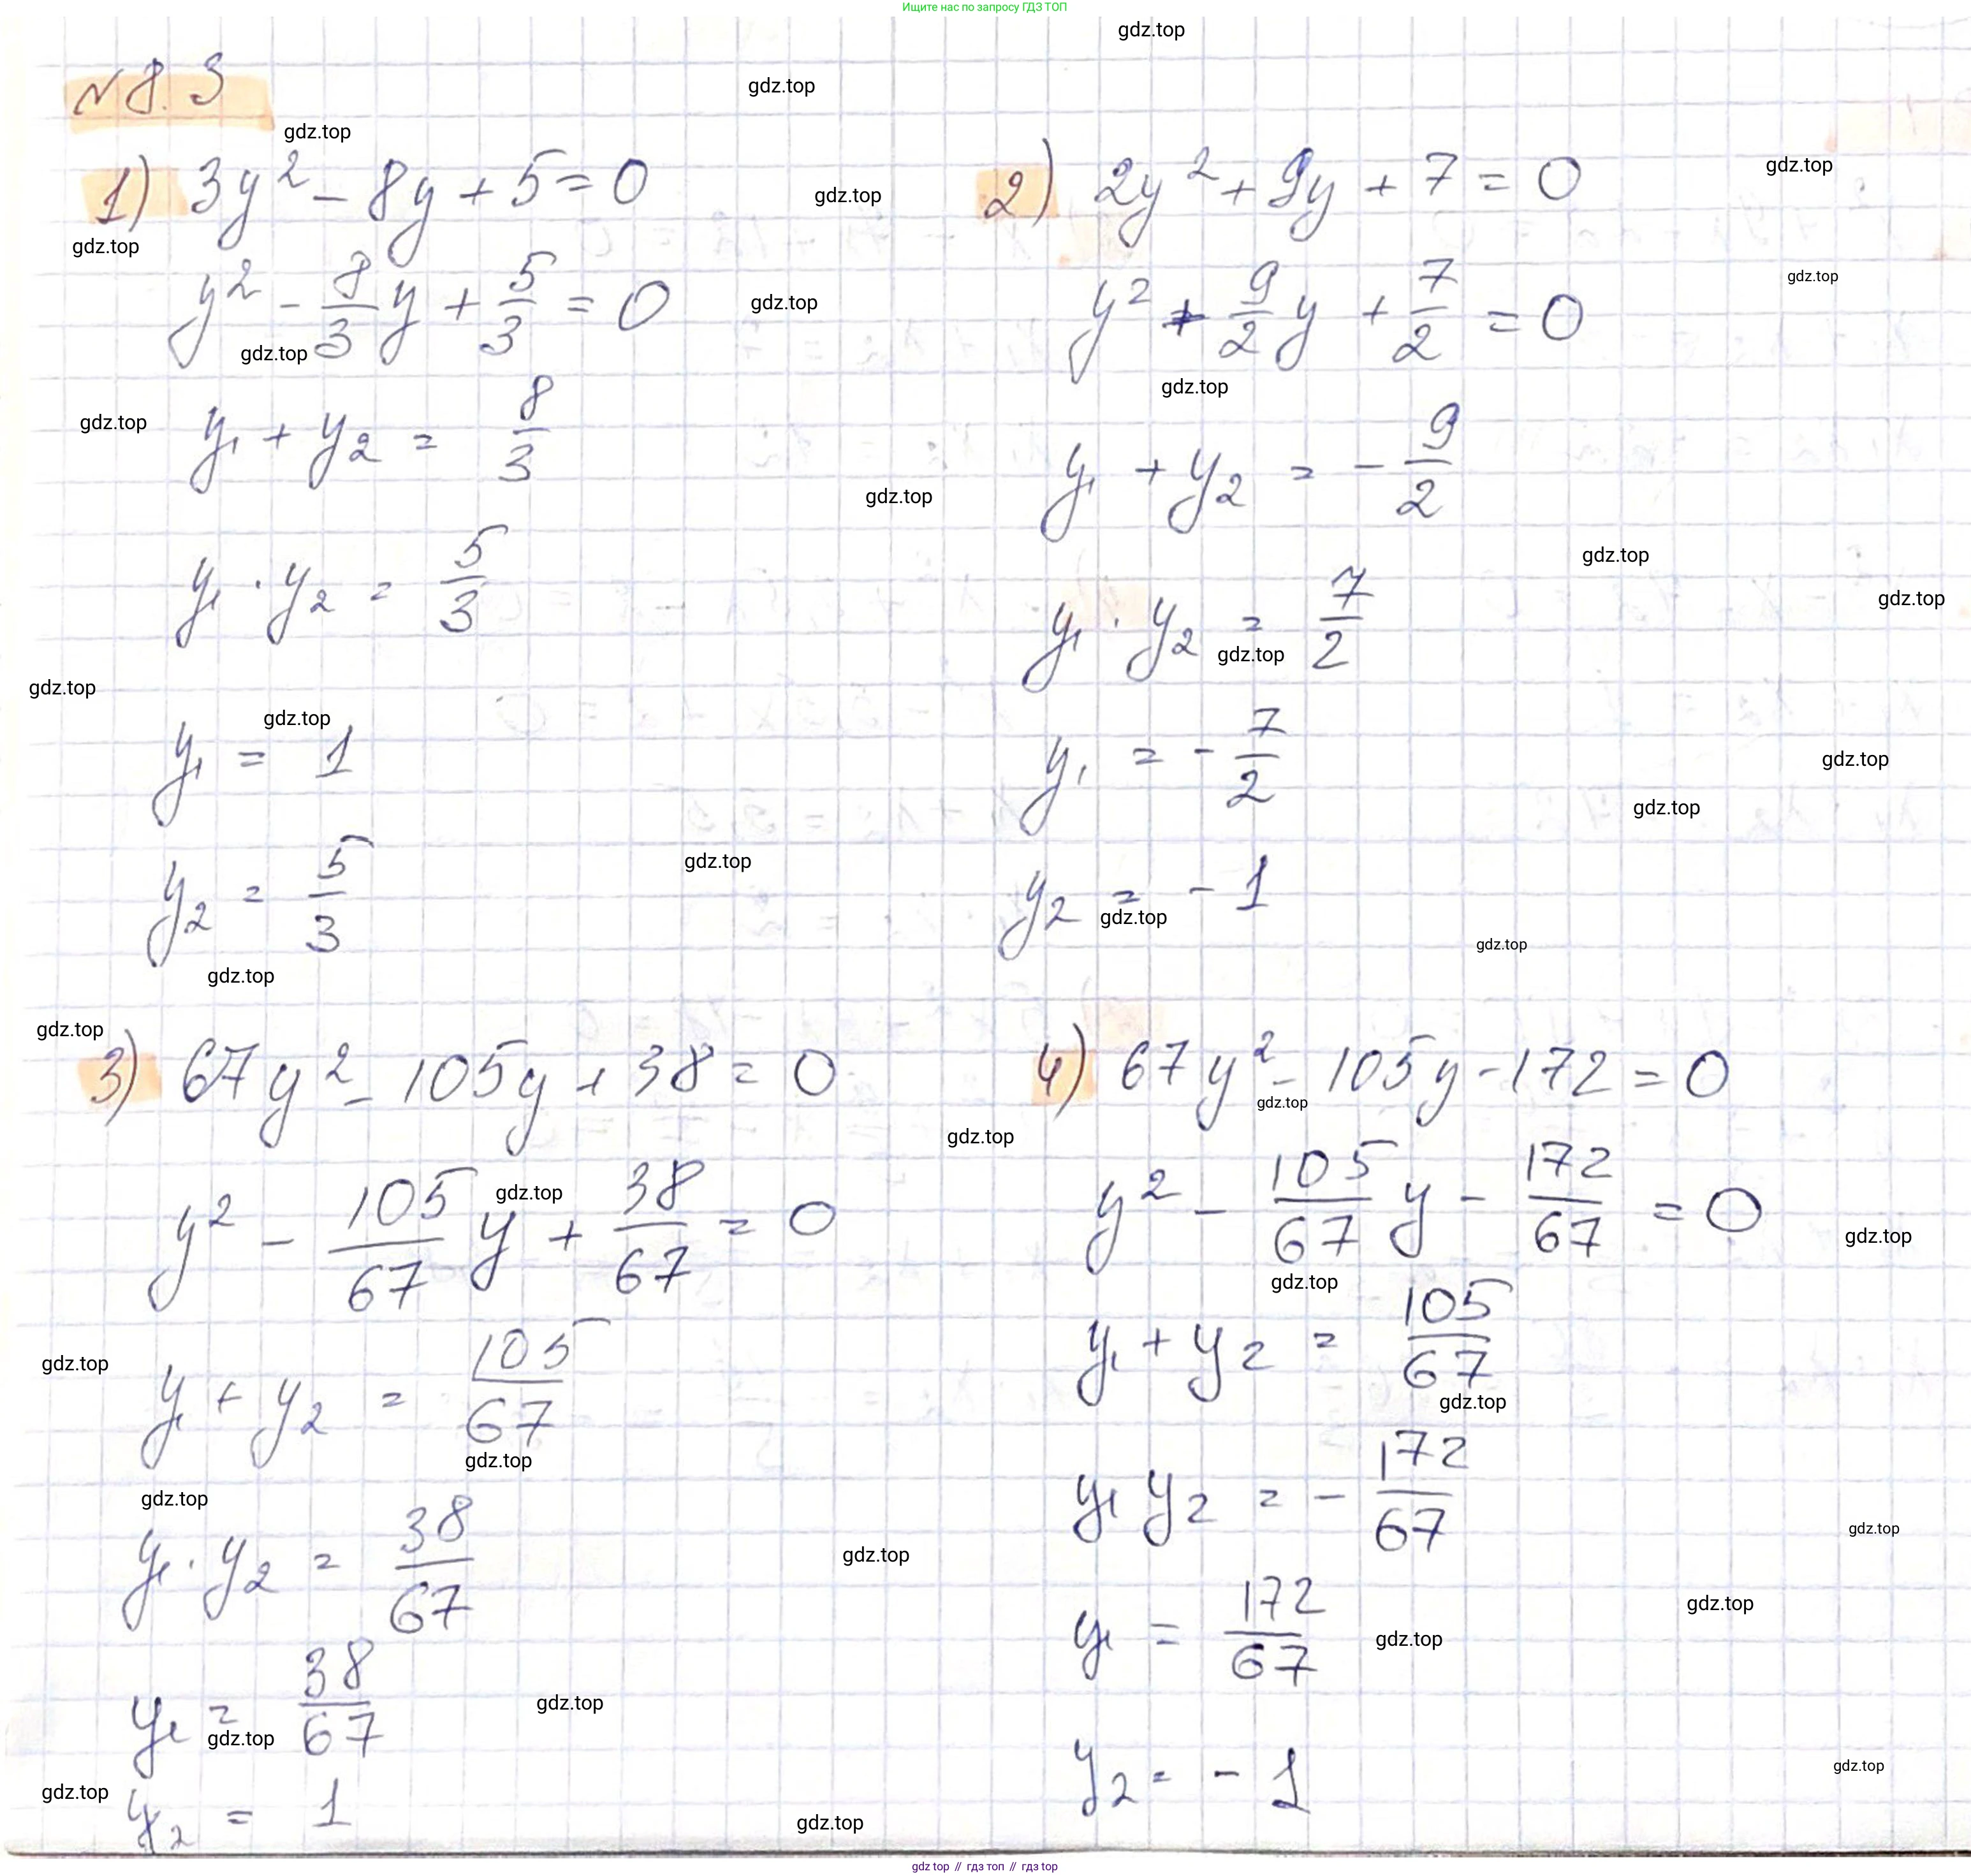 Ищите нас по запросу ГДЗ ТОП
gdz.top
N 8.3
1) 3y² - 8y + 5 = 0
y² - 8/3 y + 5/3 = 0
y₁ + y₂ = 8/3
y₁ · y₂ = 5/3
y₁ = 1
y₂ = 5/3
2) 2y² + 9y + 7 = 0
y² + 9/2 y + 7/2 = 0
y₁ + y₂ = - 9/2
y₁ · y₂ = 7/2
y₁ = - 7/2
y₂ = - 1
3) 67y² - 105y + 38 = 0
y² - 105/67 y + 38/67 = 0
y₁ + y₂ = 105/67
y₁ · y₂ = 38/67
y₁ = 38/67
y₂ = 1
4) 67y² - 105y - 172 = 0
y² - 105/67 y - 172/67 = 0
y₁ + y₂ = 105/67
y₁ y₂ = - 172/67
y₁ = 172/67
y₂ = - 1
gdz.top // гдз топ // гдз.top